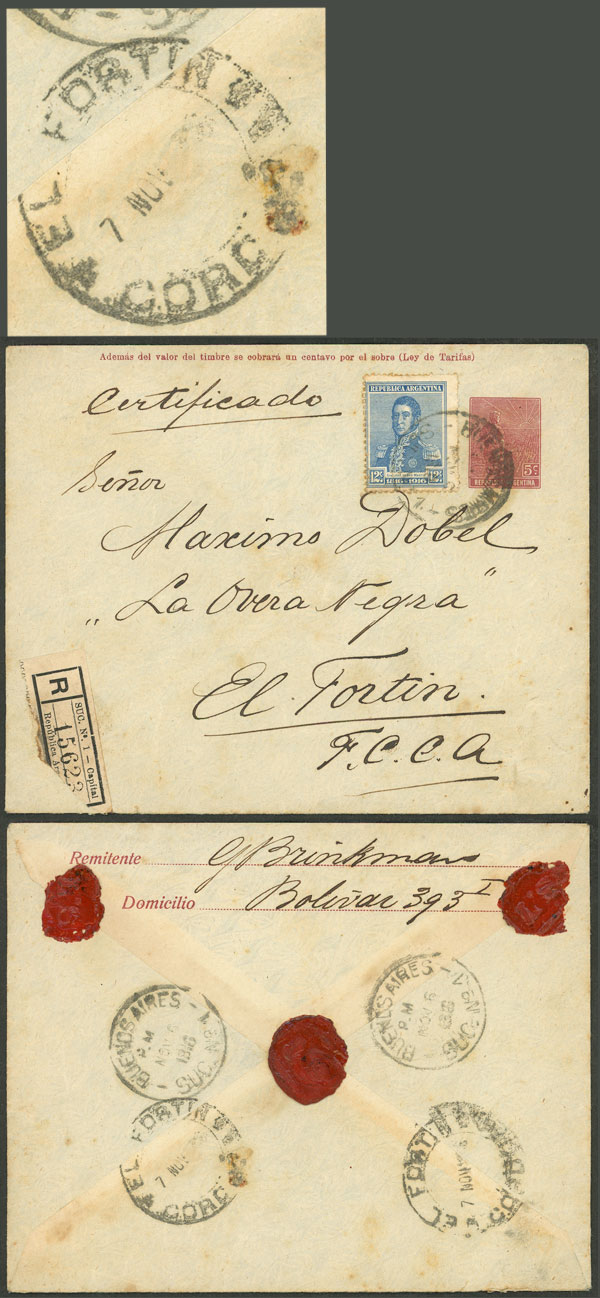 EL FORTIN
7 NOV
CORD
Además del valor del timbre se cobrará un centavo por el sobre (Ley de Tarifas)
Certificado
REPUBLICA ARGENTINA
12c 12c
1816-1916
5c
REPUBLICA ARGENTINA
Señor
Maximo Dobel
"La Overa Negra"
El Fortin.
F.C.C.A
R
SUC. Nº. 1 - Capital
15623
República Ar
Remitente G Brinkman
Domicilio Bolivar 393 I
BUENOS AIRES - SUC Nº 1
P.M
NOV 6
1916
BUENOS AIRES - SUC Nº 1
P.M
NOV 6
1916
EL FORTIN
7 NOV
CORD
EL FORTIN
7 NOV